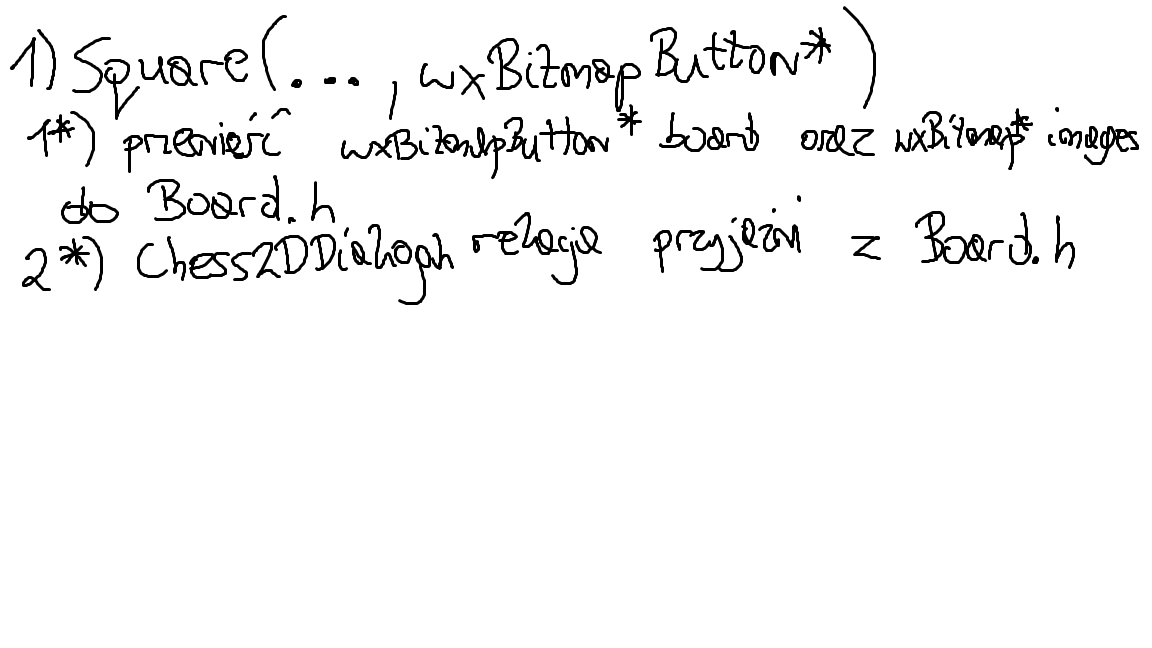 1) Square(..., wxBitmapButton*)
1*) przenieść wxBitmapButton* board oraz wxBitmap* images
do Board.h
2*) Chess2DDialog.h relacja przyjaźni z Board.h